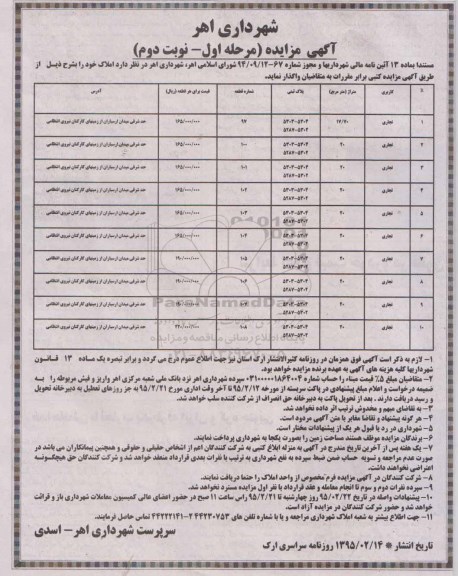 شهرداری اهر
آگهی مزایده (مرحله اول- نوبت دوم)
مستندا بماده ۱۳ آئین نامه مالی شهرداریها و مجوز شماره ۶۷-۹۴/۰۹/۱۲ شورای اسلامی اهر، شهرداری اهر در نظر دارد املاک خود را بشرح ذیل از
طریق آگهی مزایده کتبی برابر مقررات به متقاضیان واگذار نماید.
کاربری متراژ (متر مربع) پلاک ثبتی شماره قطعه قیمت برای هر قطعه (ریال) آدرس
۱ تجاری ۹۷ حد شرقی میدان ارسباران از زمینهای کارکنان نیروی انتظامی
۲ تجاری ۲۰ ۱۰۰ حد شرقی میدان ارسباران از زمینهای کارکنان نیروی انتظامی
۳ تجاری ۲۰ ۱۰۱ حد شرقی میدان ارسباران از زمینهای کارکنان نیروی انتظامی
۴ تجاری ۲۰ ۱۰۲ حد شرقی میدان ارسباران از زمینهای کارکنان نیروی انتظامی
۵ تجاری ۲۰ ۱۰۳ حد شرقی میدان ارسباران از زمینهای کارکنان نیروی انتظامی
۶ تجاری ۲۰ حد شرقی میدان ارسباران از زمینهای کارکنان نیروی انتظامی
۷ تجاری ۲۰ ۱۰۵ حد شرقی میدان ارسباران از زمینهای کارکنان نیروی انتظامی
۸ تجاری ۲۰ حد شرقی میدان ارسباران از زمینهای کارکنان نیروی انتظامی
۹ تجاری ۲۰ حد شرقی میدان ارسباران از زمینهای کارکنان نیروی انتظامی
۱۰ تجاری ۲۰ ۱۰۸ حد شرقی میدان ارسباران از زمینهای کارکنان نیروی انتظامی
۱- لازم به ذکر است آگهی فوق همزمان در روزنامه کثیرالانتشار ارک استان نیز جهت اطلاع عموم درج می گردد و برابر تبصره یک ماده ۱۳ قانون
شهرداریها کلیه هزینه های آگهی به عهده برنده مزایده خواهد بود.
۲- متقاضیان مبلغ ۵٪ قیمت مبناء را حساب شماره ۰۳۱۰۰۰۰۰۱۸۶۴۰۰۴ سپرده شهرداری اهر نزد بانک ملی شعبه مرکزی اهر واریز و فیش مربوطه را به
ضمیمه درخواست و اعلام مبلغ پیشنهادی در پاکت سربسته از مورخه ۹۵/۲/۱۲ تا آخر وقت اداری مورخ ۹۵/۲/۲۱ به جز روزهای تعطیل به دبیرخانه تحویل
و رسید دریافت دارند. بعد از تحویل پاکت به دبیرخانه حق انصراف از شرکت کننده سلب خواهد شد.
۳- به تقاضای مبهم و مخدوش ترتیب اثر داده نخواهد شد.
۴- هر گونه پیشنهاد و تقاضا مغایر با متن آگهی مردود است.
۵- شهرداری در رد یا قبول هر یک از پیشنهادات مختار است.
۶- برندگان مزایده موظف هستند مساحت زمین را بصورت یکجا به شهرداری پرداخت نمایند.
۷- یک هفته پس از آخرین تاریخ مندرج در آگهی به منزله ابلاغ کتبی به شرکت کنندگان اعم از اشخاص حقیقی و حقوقی و همچنین پیمانکاران می باشد در
صورت عدم مراجعه و تسویه حساب ضمن ضبط سپرده به نفع شهرداری به ترتیب با نفرات بعدی قرارداد منعقد خواهد شد و شرکت کنندگان حق هیچگونه
اعتراضی نخواهند داشت.
۸- شرکت کنندگان در آگهی مزایده فرم مخصوص از واحد املاک را حتما دریافت نمایند.
۹- سپرده نفرات دوم و سوم تا انجام معامله و عقد قرارداد با نفر اول مزایده مسترد نخواهد شد.
۱۰- پیشنهادات واصله در تاریخ ۹۵/۰۲/۲۲ روز چهارشنبه راس ساعت ۱۱ صبح در حضور اعضای عالی کمیسیون معاملات شهرداری باز و قرائت
خواهد شد و حضور شرکت کنندگان در مزایده آزاد است.
۱۱- جهت اطلاع بیشتر به شعبه املاک شهرداری مراجعه و یا با شماره تلفن های ۲-۴۴۲۲۲۱۴۱ ۴۴۲۳۰۷۵۳ تماس حاصل فرمایند.
سرپرست شهرداری اهر - اسدی
تاریخ انتشار * ۱۳۹۵/۰۲/۱۴ روزنامه سراسری ارک